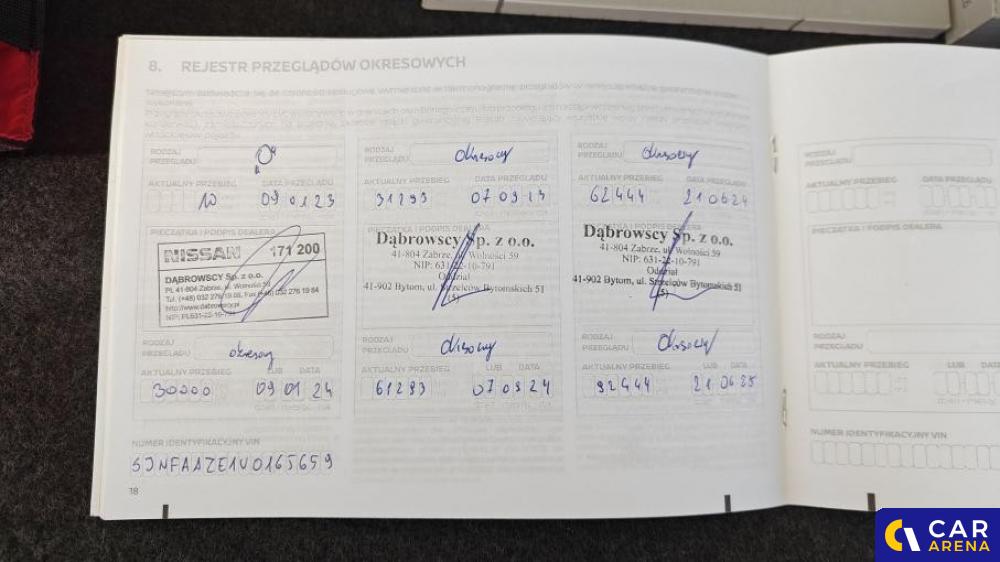 8. REJESTR PRZEGLĄDÓW OKRESOWYCH
RODZAJ
PRZEGLĄDU
AKTUALNY PRZEBIEG DATA PRZEGLĄDU
10 09 01 23
PIECZĄTKA I PODPIS DEALERA
NISSAN 171 200
DĄBROWSCY Sp. z o.o.
PL 41-804 Zabrze, ul. Wolności 59
Tel. (+48) 032 276 19 08, Fax (+48) 032 276 19 84
http://www.dabrowscy.pl
NIP: PL631-22-10-791
RODZAJ
PRZEGLĄDU okresowy
AKTUALNY PRZEBIEG LUB DATA
30000 09 01 24
RODZAJ
PRZEGLĄDU Okresowy
AKTUALNY PRZEBIEG DATA PRZEGLĄDU
31293 07 09
PIECZĄTKA I PODPIS DEALERA
Dąbrowscy Sp. z o.o.
41-804 Zabrze, ul. Wolności 59
NIP: 631-22-10-791
Oddział
41-902 Bytom, ul. Strzelców Bytomskich 51
(5)
RODZAJ
PRZEGLĄDU Okresowy
AKTUALNY PRZEBIEG LUB DATA
61293 07 09 24
RODZAJ
PRZEGLĄDU Okresowy
AKTUALNY PRZEBIEG DATA PRZEGLĄDU
62444 21 06 24
Dąbrowscy Sp. z o.o.
41-804 Zabrze, ul. Wolności 59
NIP: 631-22-10-791
Oddział
41-902 Bytom, ul. Strzelców Bytomskich 51
(5)
RODZAJ
PRZEGLĄDU Okresowy
AKTUALNY PRZEBIEG LUB DATA
92444 21 06 25
NUMER IDENTYFIKACYJNY VIN
SJNFAAZE1U0165659
18
RODZAJ
PRZEGLĄDU
AKTUALNY PRZEBIEG DATA
PIECZĄTKA I PODPIS DEALERA
RODZAJ
PRZEGLĄDU
AKTUALNY PRZEBIEG
NUMER IDENTYFIKACYJNY VIN
CAR
ARENA